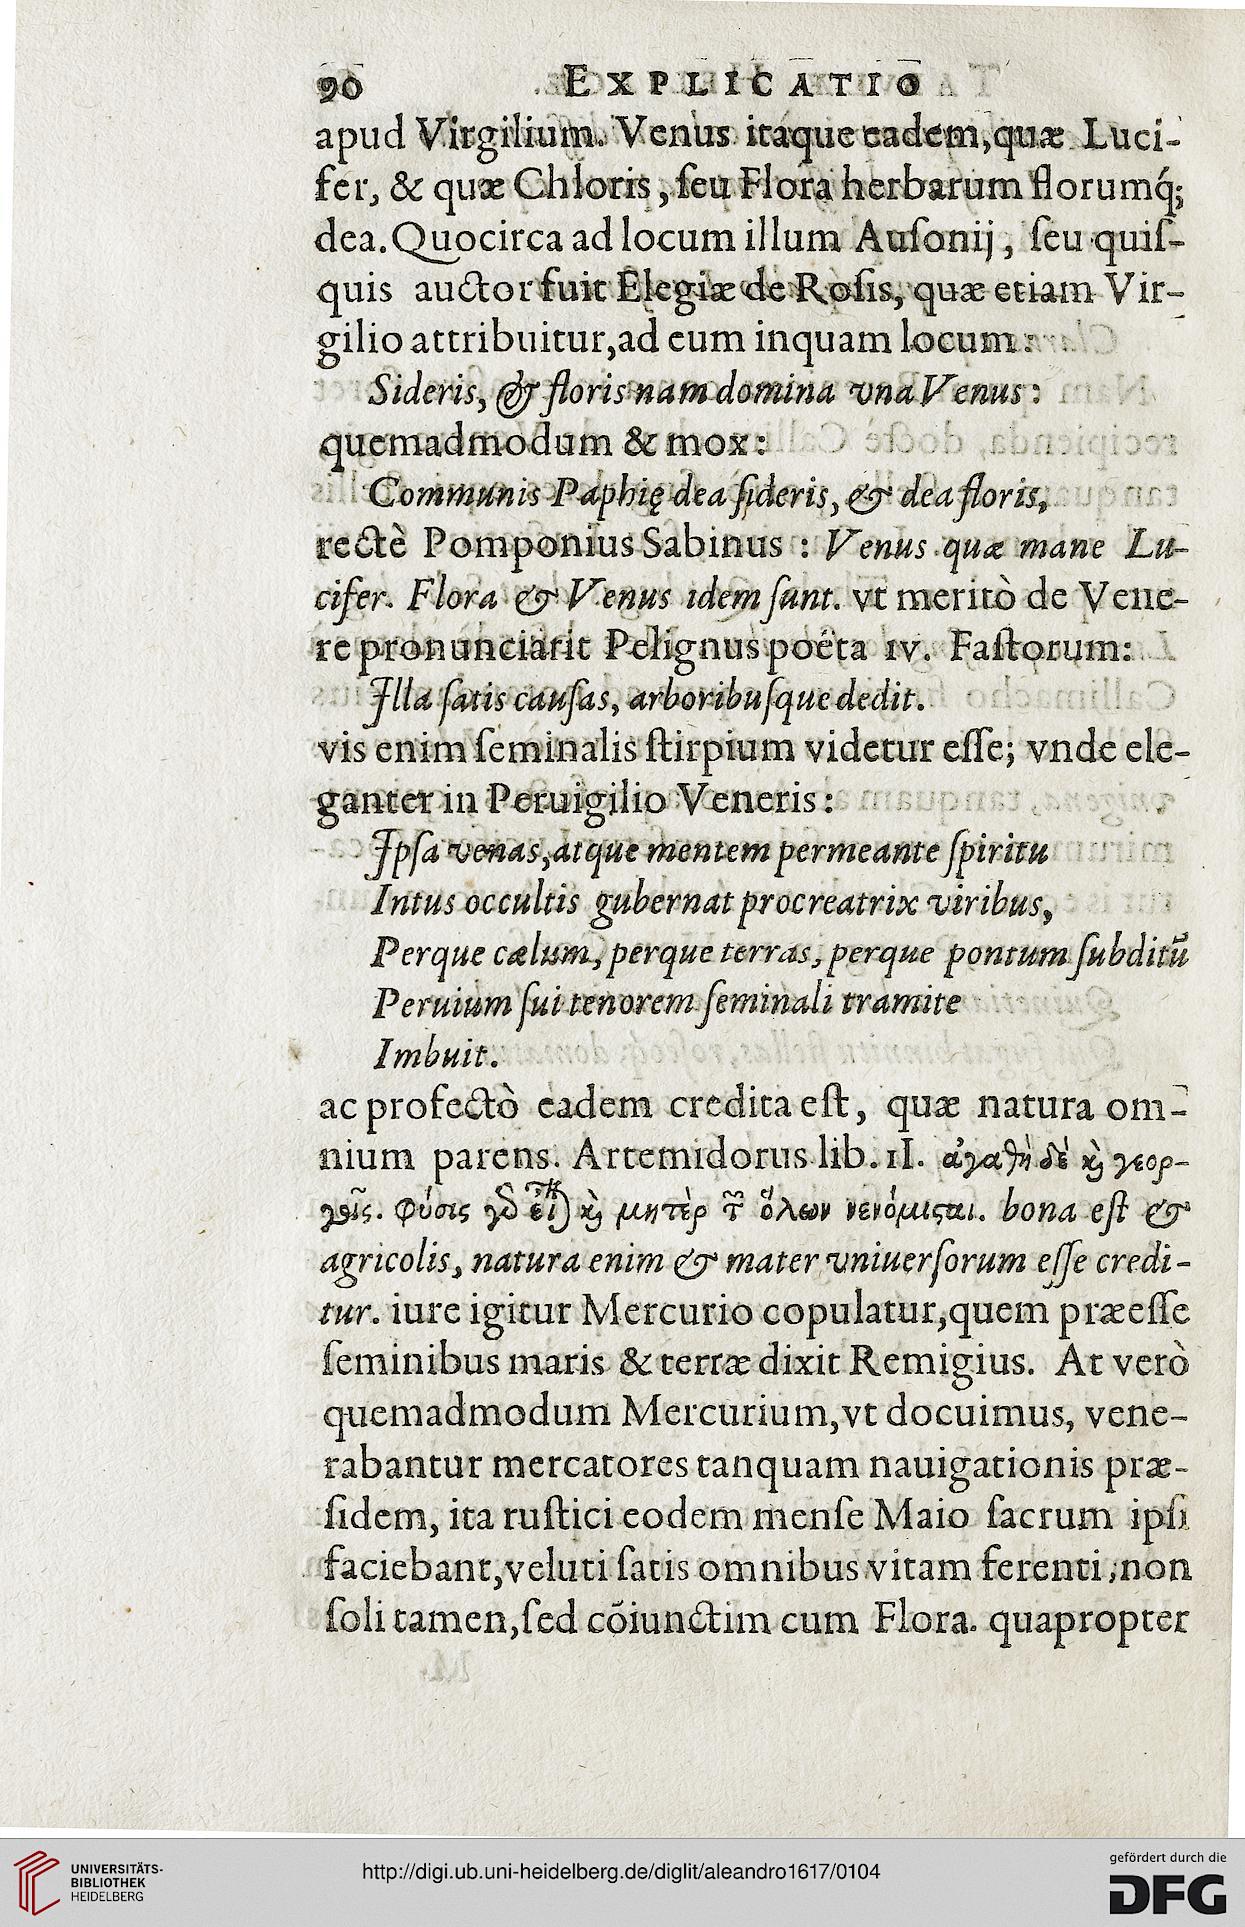 90 EXPLICATIO
apud Virgilium. Venus itaque eadem,quæ Luci-
fer, & quæ Chloris, ſeu Flora herbarum florumq́;
dea. Quocirca ad locum illum Auſonij, ſeu quiſ-
quis auctor fuit Elegiæ de Roſis, quæ etiam Vir-
gilio attribuitur,ad eum inquam locum:
Sideris, & floris nam domina vna Venus:
quemadmodum & mox:
Communis Paphię dea ſideris, & dea floris,
rectè Pomponius Sabinus : Venus quæ mane Lu-
cifer. Flora & Venus idem ſunt. vt meritò de Vene-
re pronunciarit Pelignus poëta IV. Faſtorum:
Illa ſatis cauſas, arboribuſque dedit.
vis enim ſeminalis ſtirpium videtur eſſe; vnde ele-
ganter in Peruigilio Veneris:
Ipſa venas, atque mentem permeante ſpiritu
Intus occultis gubernat procreatrix viribus,
Perque cælum, perque terras, perque pontum ſubditũ
Peruium ſui tenorem ſeminali tramite
Imbuit.
ac profectò eadem credita eſt, quæ natura om-
nium parens. Artemidorus lib. II. ἀγαθὴ δὲ ϗ̀ γεορ-
γοῖς. Φύσις γὸ ϗ̀ μητὲρ τ῀ ὅλων νενόμισται. bona eſt &
agricolis, natura enim & mater vniuerſorum eſſe credi-
tur. iure igitur Mercurio copulatur,quem præeſſe
ſeminibus maris & terræ dixit Remigius. At verò
quemadmodum Mercurium,vt docuimus, vene-
rabantur mercatores tanquam nauigationis præ-
ſidem, ita ruſtici eodem menſe Maio ſacrum ipſi
faciebant,veluti ſatis omnibus vitam ferenti; non
ſoli tamen,ſed cõiunctim cum Flora. quapropter
UNIVERSITÄTS-
BIBLIOTHEK
HEIDELBERG
http://digi.ub.uni-heidelberg.de/diglit/aleandro1617/0104
gefördert durch die
DFG